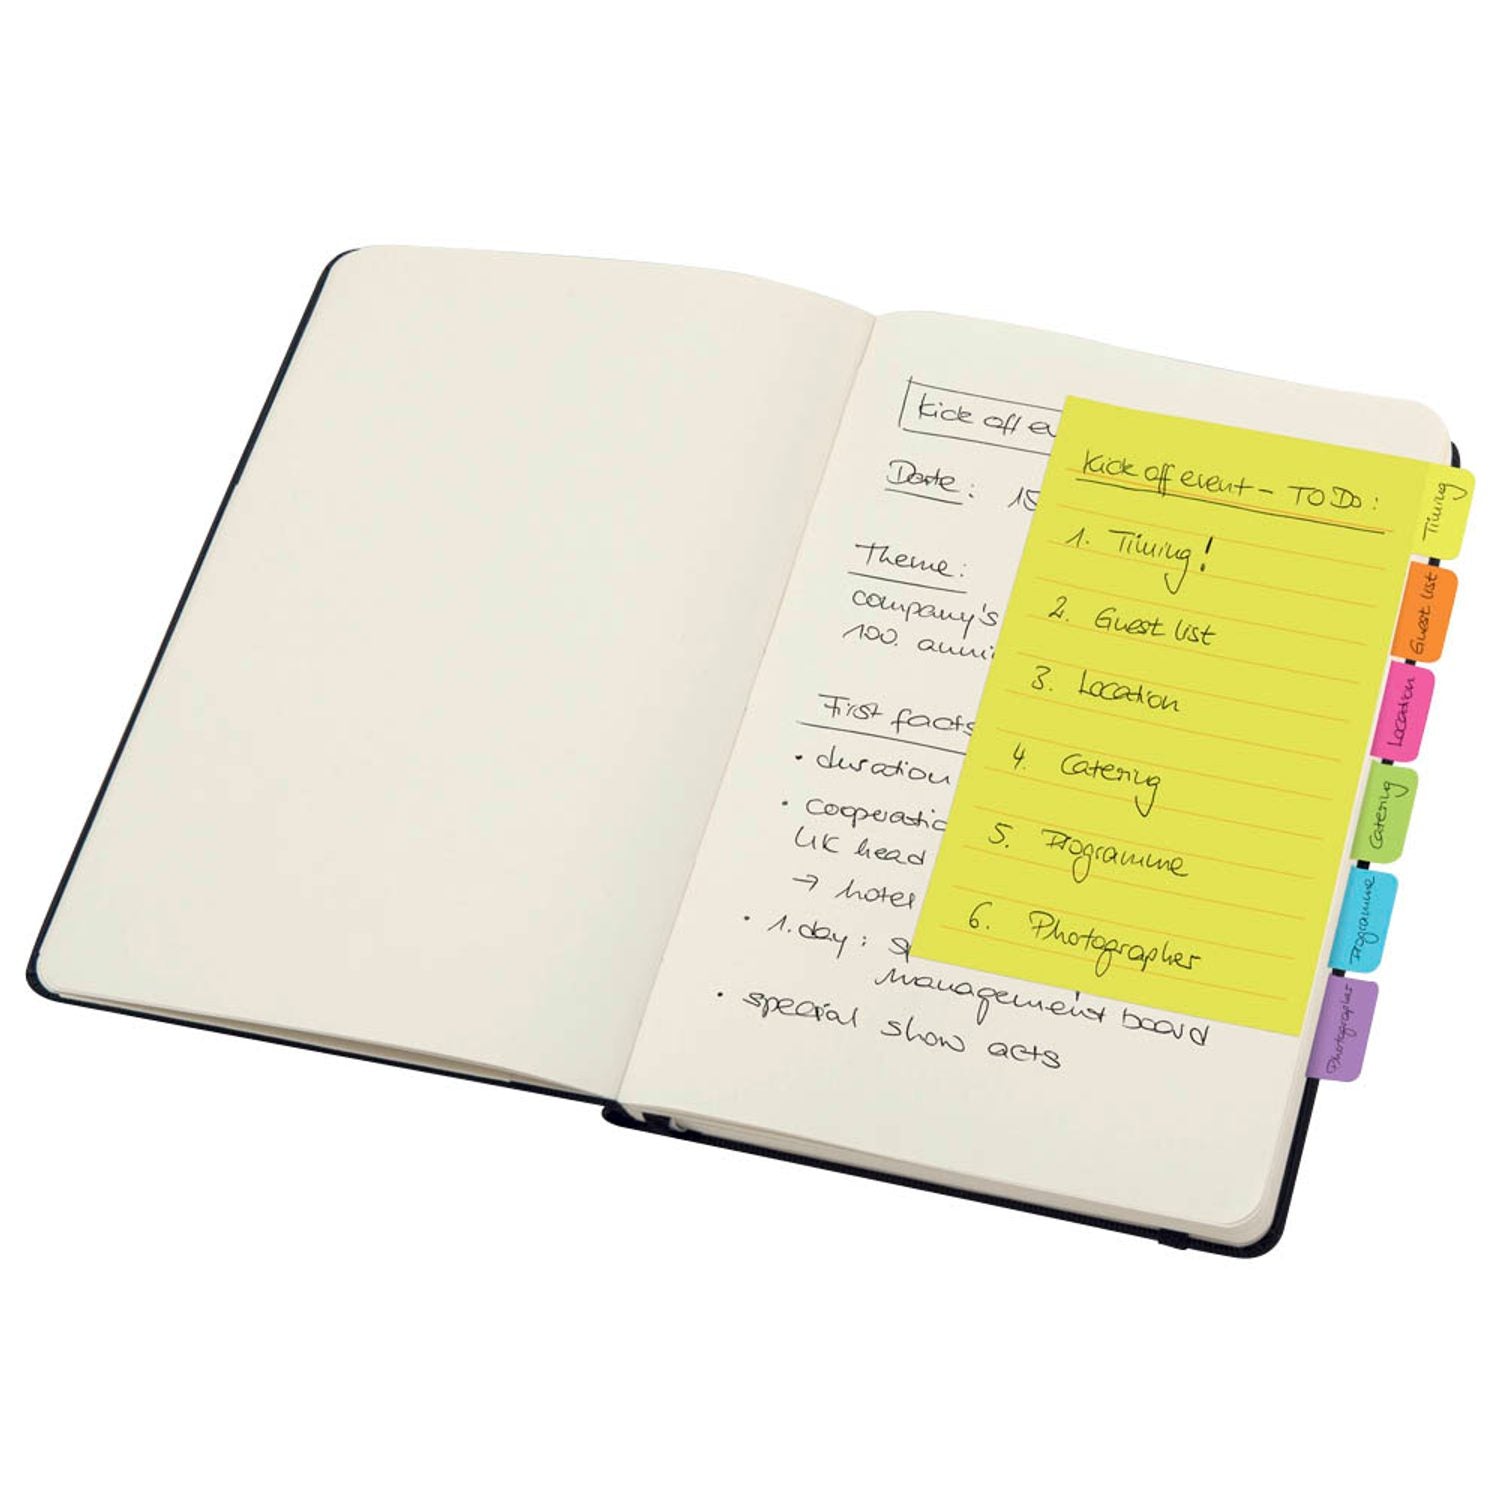 kick off
Date: 15
Theme:
company's
100.
First facts
• duration
• 
UK head
→ hotel
• 1. day:
management board
• special show acts
kick off event - TO DO:
1. Timing!
2. Guest list
3. Location
4. Catering
5. Programme
6. Photographer
Timing
Guest list
Location
Catering
Programme
Photographer